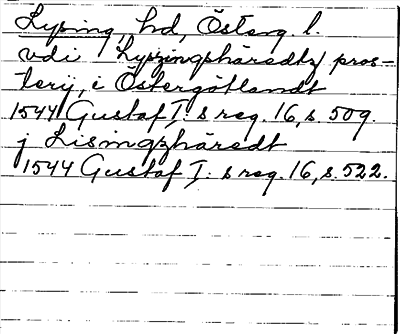 Lysing, hd, Österg. l.
vdi Lyszingshäredtz pros-
terij, i Östergötlandt
1544 Gustaf I:s reg. 16, s. 509.
j Lisingzhäredt
1544 Gustaf I:s reg. 16, s. 522.